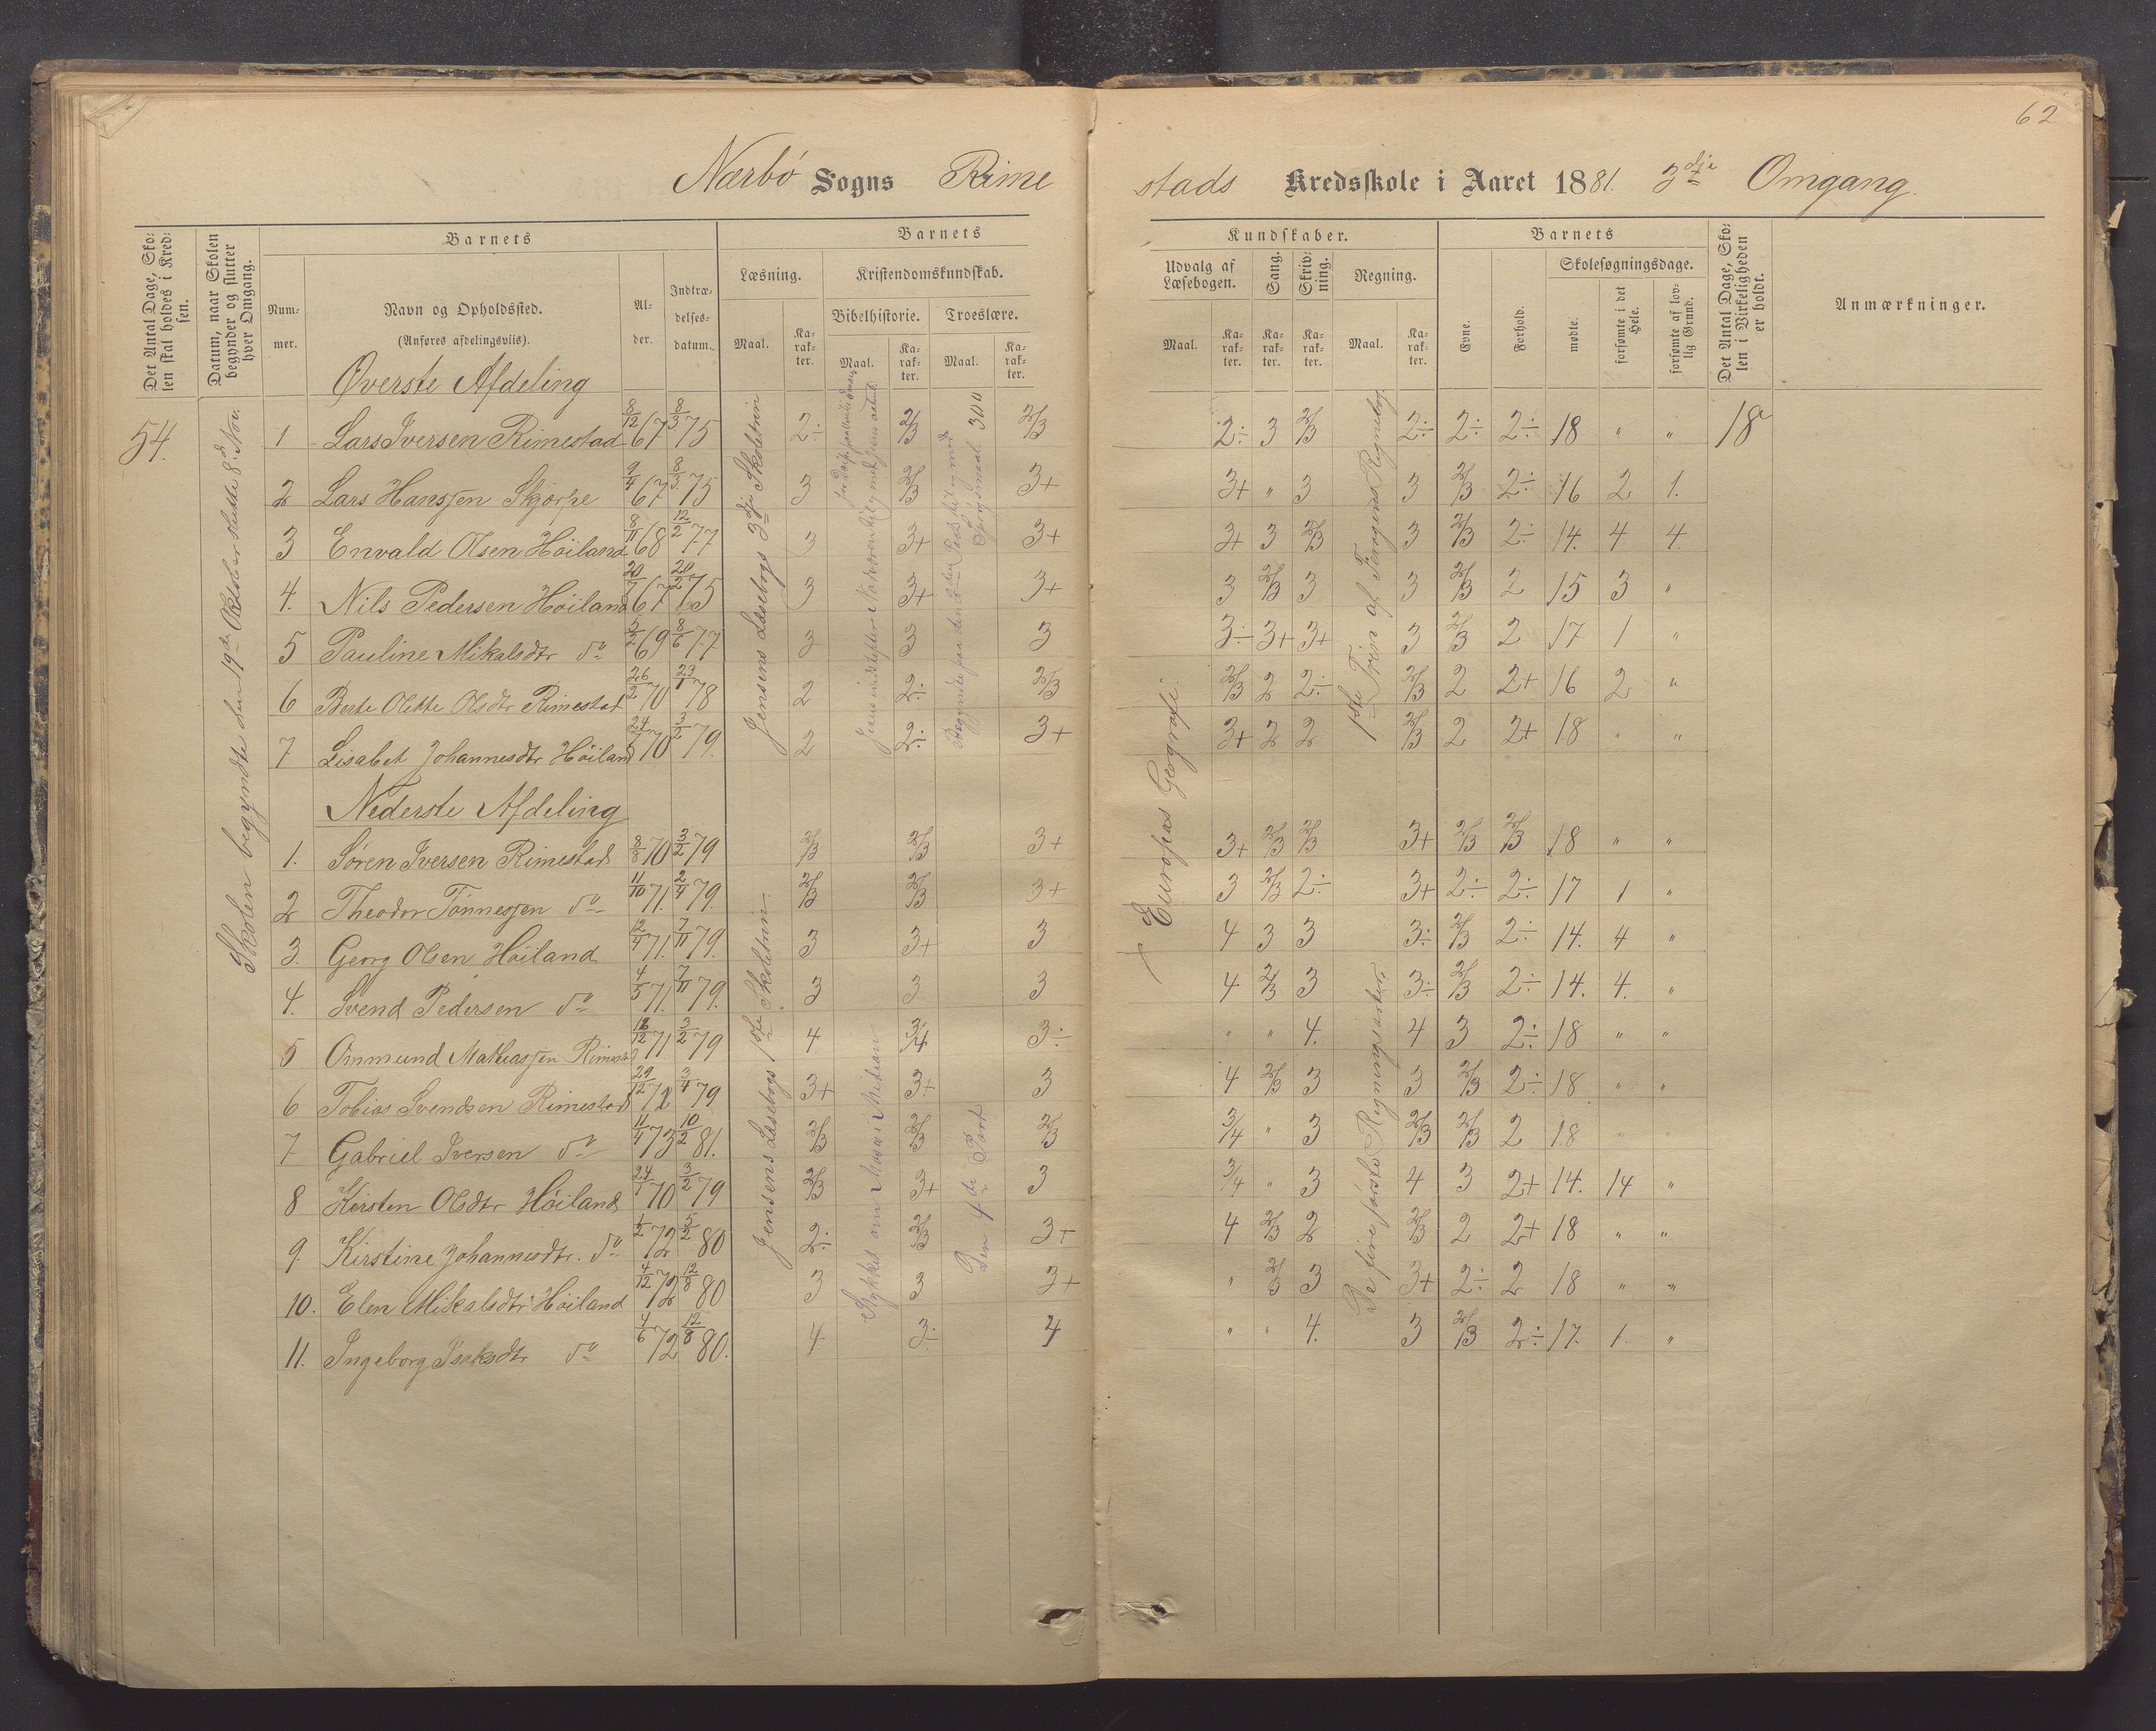 62
Nærbø Sogns Rimestads Kredsskole i Aaret 1881. 3dje Omgang.
Det Antal Dage, Skolen skal holdes i Kredsen.
Datum, naar Skolen begynder og slutter hver Omgang.
Barnets
Nummer.
Navn og Opholdssted.
(Anføres afdelingsviis).
Alder.
Indtrædelsesdatum.
Barnets
Læsning.
Maal.
Karakter.
Kristendomskundskab.
Bibelhistorie.
Maal.
Karakter.
Troeslære.
Maal.
Karakter.
Kundskaber.
Udvalg af Læsebogen.
Maal.
Karakter.
Sang.
Karakter.
Skrivning.
Karakter.
Regning.
Maal.
Karakter.
Barnets
Evne.
Forhold.
Skolesøgningsdage.
mødte.
forsømte i det Hele.
forsømte af lovlig Grund.
Det Antal Dage, Skolen i Virkeligheden er holdt.
Anmærkninger.
54.
Skolen begyndte den 19de Oktober sluttede 8d Nov.
Jensens Læsebogs 3dje Skoletrin
1ste Trin af Regnebog
Europas Geografi
Øverste Afdeling
1 Lars Iversen Rimestad 8/12 67 8/3 75 2÷ 2/3 2/3 2÷ 3 2/3 2÷ 2÷ 2÷ 18 " " 18
2 Lars Hanssen Skjærpe 9/4 67 8/3 75 3 2/3 3+ 3+ " 3 3 2/3 2÷ 16 2 1.
3 Envald Olsen Høiland 8/11 68 12/2 77 3 3+ 3+ 3+ 3 2/3 3 2/3 2÷ 14. 4 4
4. Nils Pedersen Høiland 20/7 67 20/2 75 3 3+ 3+ 3 2/3 3 3 2/3 2 15 3 "
5 Pauline Mikalsdtr do 3/2 69 8/6 77 3 3 3 3÷ 3+ 3+ 3 2/3 2 17 1 "
6 Berte Olette Olsdtr Rimestad 26/2 70 23/1 78 2 2÷ 2/3 2/3 2 2÷ 2/3 2 2+ 16 2 "
7 Lisabet Johannesdtr Høiland 24/5 70 3/2 79. 2 2÷ 3+ 3+ 2 2 2/3 2 2+ 18 " "
Nederste Afdeling
Jensens Læsebogs 1ste Skoletrin
Stykket om Moses i Midian
Den 4de Part
De fire første Regningsarter
1. Søren Iversen Rimestad 8/8 70 3/2 79 2/3 2/3 3+ 3+ 2/3 2/3 3+ 2/3 2/3 18 " "
2 Theodor Tønnessen do 11/10 71. 2/4 79. 2/3 2/3 3+ 3 2/3 2÷ 3+ 2÷ 2÷ 17 1 "
3. Georg Olsen Høiland 12/4 71. 7/11 79. 3 3+ 3 4 3 3 3÷ 2/3 2÷ 14. 4 "
4. Svend Pedersen do 4/5 71. 7/11 79. 3 3 3 4 2/3 3 3÷ 2/3 2÷ 14. 4. "
5 Ommund Mathiassen Rimestad 12/12 71 3/2 79 4 3/4 3÷ " " 4. 4 3 2÷ 18 " "
6 Tobias Svendsen Rimestad 29/12 72 3/4 79 3+ 3+ 3 4 2/3 3 3 2/3 2÷ 18 " "
7 Gabriel Iversen do 11/4 73 10/2 81. 2/3 2/3 2/3 3/4 " 3 2/3 2/3 2 18 " "
8 Kirsten Olsdtr Høiland 24/1 70 3/2 79 2/3 3+ 3 3/4 " 3 4 3 2+ 14. 14 "
9. Kirstine Johannesdtr. do 1/2 72 5/2 80 2÷ 2/3 3+ 4 2/3 2 2/3 2 2+ 18 " "
10. Elen Mikalsdtr Høiland 4/12 72 12/8 80 3 3 3+ " 2/3 3 3+ 2÷ 2 18 " "
11. Ingeborg Isaksdtr do 4/6 72 12/8 80. 4 3÷ 4 " " 4. 3 2/3 2÷ 17. 1 "